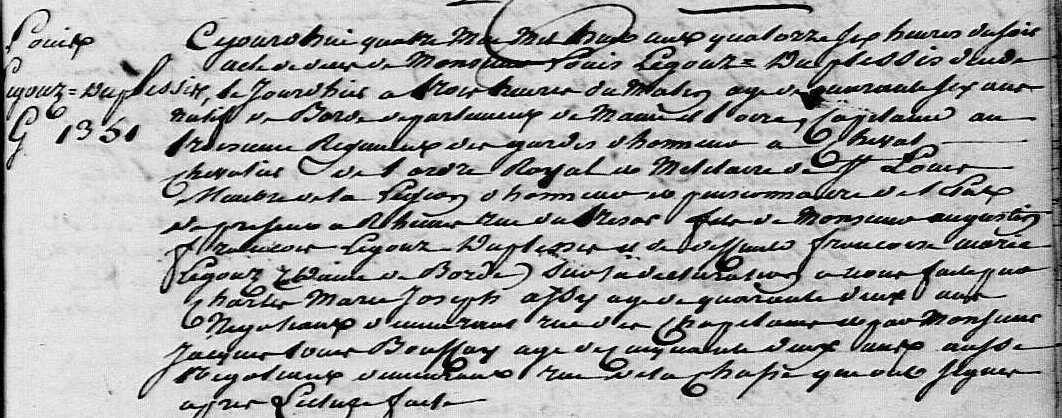 Louis
Legouz = Duplessis,
G 1351
Cejourdhui quatre Mai Mil huit cent quatorze six heures du soir
acte de deces de Monsieur Louis Legouz = Duplessis decede
ce Jourdhui a trois heures du Matin age de quarante six ans
natif de Bordé departement de Maine et Loire, Capitaine au
troisieme Regiment des gardes d'honneur a Cheval
chevalier de l'ordre Royal et Militaire de St Louis
Membre de la Legion d'honneur et pensionnaire de l'Etat
de present a Rennes rue du fils de Monsieur augustin
francois Legouz Duplessis et de deffunte francoise marie
Legouz de Bordé, sur la declaration a nous faite par
Charles Marie Joseph age de quarante deux ans
Negotiant demeurant rue des et par Monsieur
Jacques Louis Boussay age de cinquante deux ans aussi
Negotiant demeurant rue de la qui ont signé
apres Lecture faite